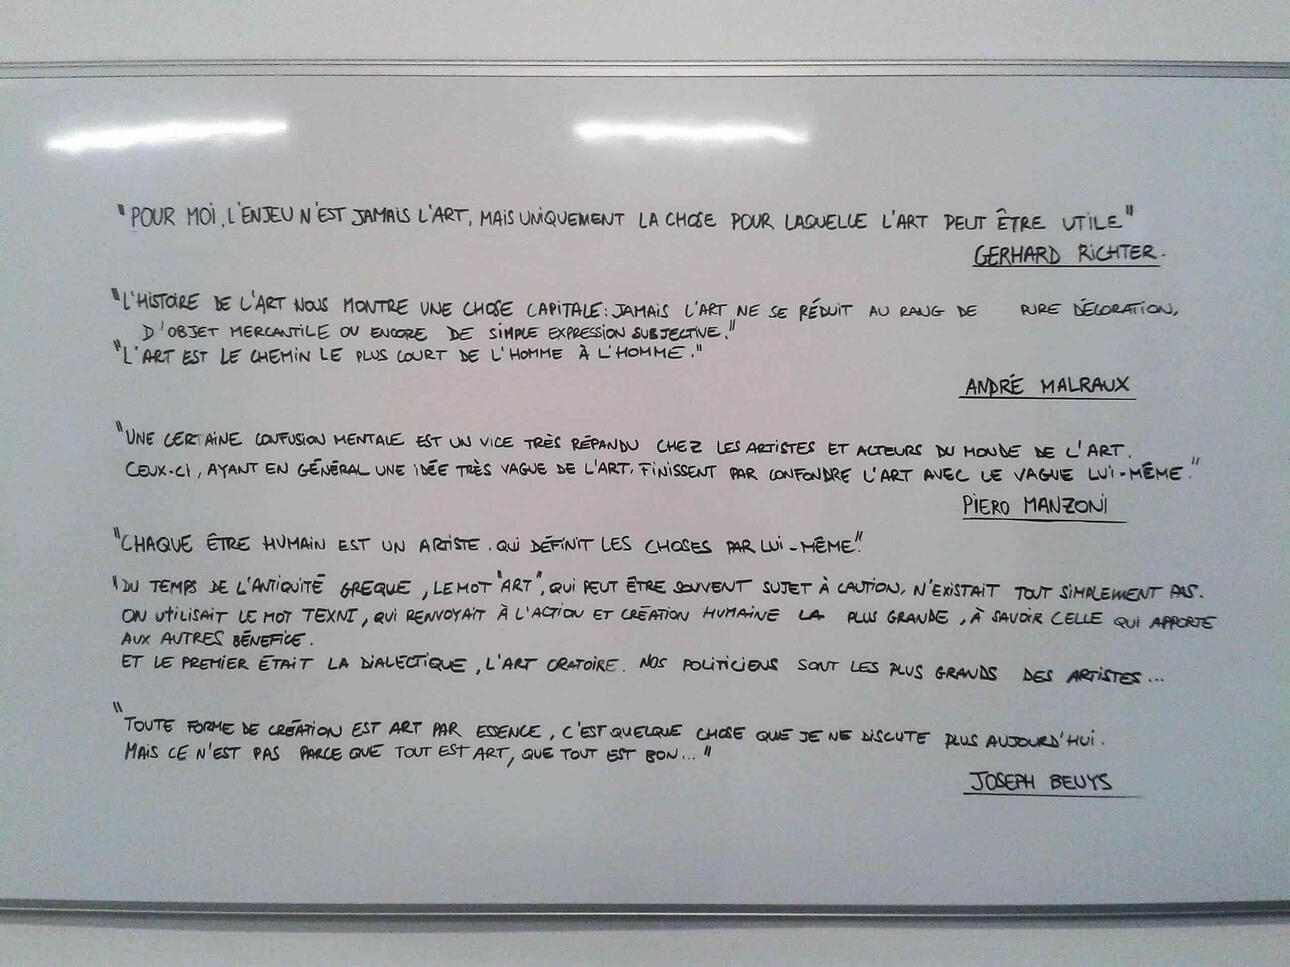 "POUR MOI, L'ENJEU N'EST JAMAIS L'ART, MAIS UNIQUEMENT LA CHOSE POUR LAQUELLE L'ART PEUT ÊTRE UTILE"
GERHARD RICHTER.
"L'HISTOIRE DE L'ART NOUS MONTRE UNE CHOSE CAPITALE: JAMAIS L'ART NE SE RÉDUIT AU RANG DE PURE DÉCORATION,
D'OBJET MERCANTILE OU ENCORE DE SIMPLE EXPRESSION SUBJECTIVE."
"L'ART EST LE CHEMIN LE PLUS COURT DE L'HOMME À L'HOMME."
ANDRÉ MALRAUX
"UNE CERTAINE CONFUSION MENTALE EST UN VICE TRÈS RÉPANDU CHEZ LES ARTISTES ET ACTEURS DU MONDE DE L'ART.
CEUX-CI, AYANT EN GÉNÉRAL UNE IDÉE TRÈS VAGUE DE L'ART, FINISSENT PAR CONFONDRE L'ART AVEC LE VAGUE LUI-MÊME."
PIERO MANZONI
"CHAQUE ÊTRE HUMAIN EST UN ARTISTE. QUI DÉFINIT LES CHOSES PAR LUI-MÊME".
"DU TEMPS DE L'ANTIQUITÉ GREQUE, LE MOT "ART", QUI PEUT ÊTRE SOUVENT SUJET À CAUTION, N'EXISTAIT TOUT SIMPLEMENT PAS.
ON UTILISAIT LE MOT TEXNI, QUI RENVOYAIT À L'ACTION ET CRÉATION HUMAINE LA PLUS GRANDE, À SAVOIR CELLE QUI APPORTE
AUX AUTRES BÉNEFICE.
ET LE PREMIER ÉTAIT LA DIALECTIQUE, L'ART ORATOIRE. NOS POLITICIENS SONT LES PLUS GRANDS DES ARTISTES...
"TOUTE FORME DE CRÉATION EST ART PAR ESSENCE, C'EST QUELQUE CHOSE QUE JE NE DISCUTE PLUS AUJOURD'HUI.
MAIS CE N'EST PAS PARCE QUE TOUT EST ART, QUE TOUT EST BON..."
JOSEPH BEUYS